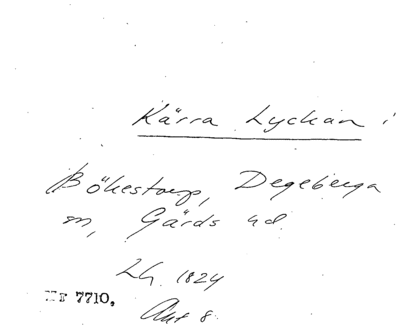 Kärra Lyckan i
Bökestorp, Degeberga
sn, Gärds hd.
LG. 1824
Nr 7710,
Akt 8